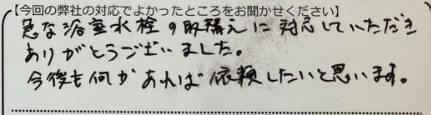 【今回の弊社の対応でよかったところをお聞かせください】
急な浴室水栓の取替えに対応していただき
ありがとうございました。
今後も何かあれば依頼したいと思います。